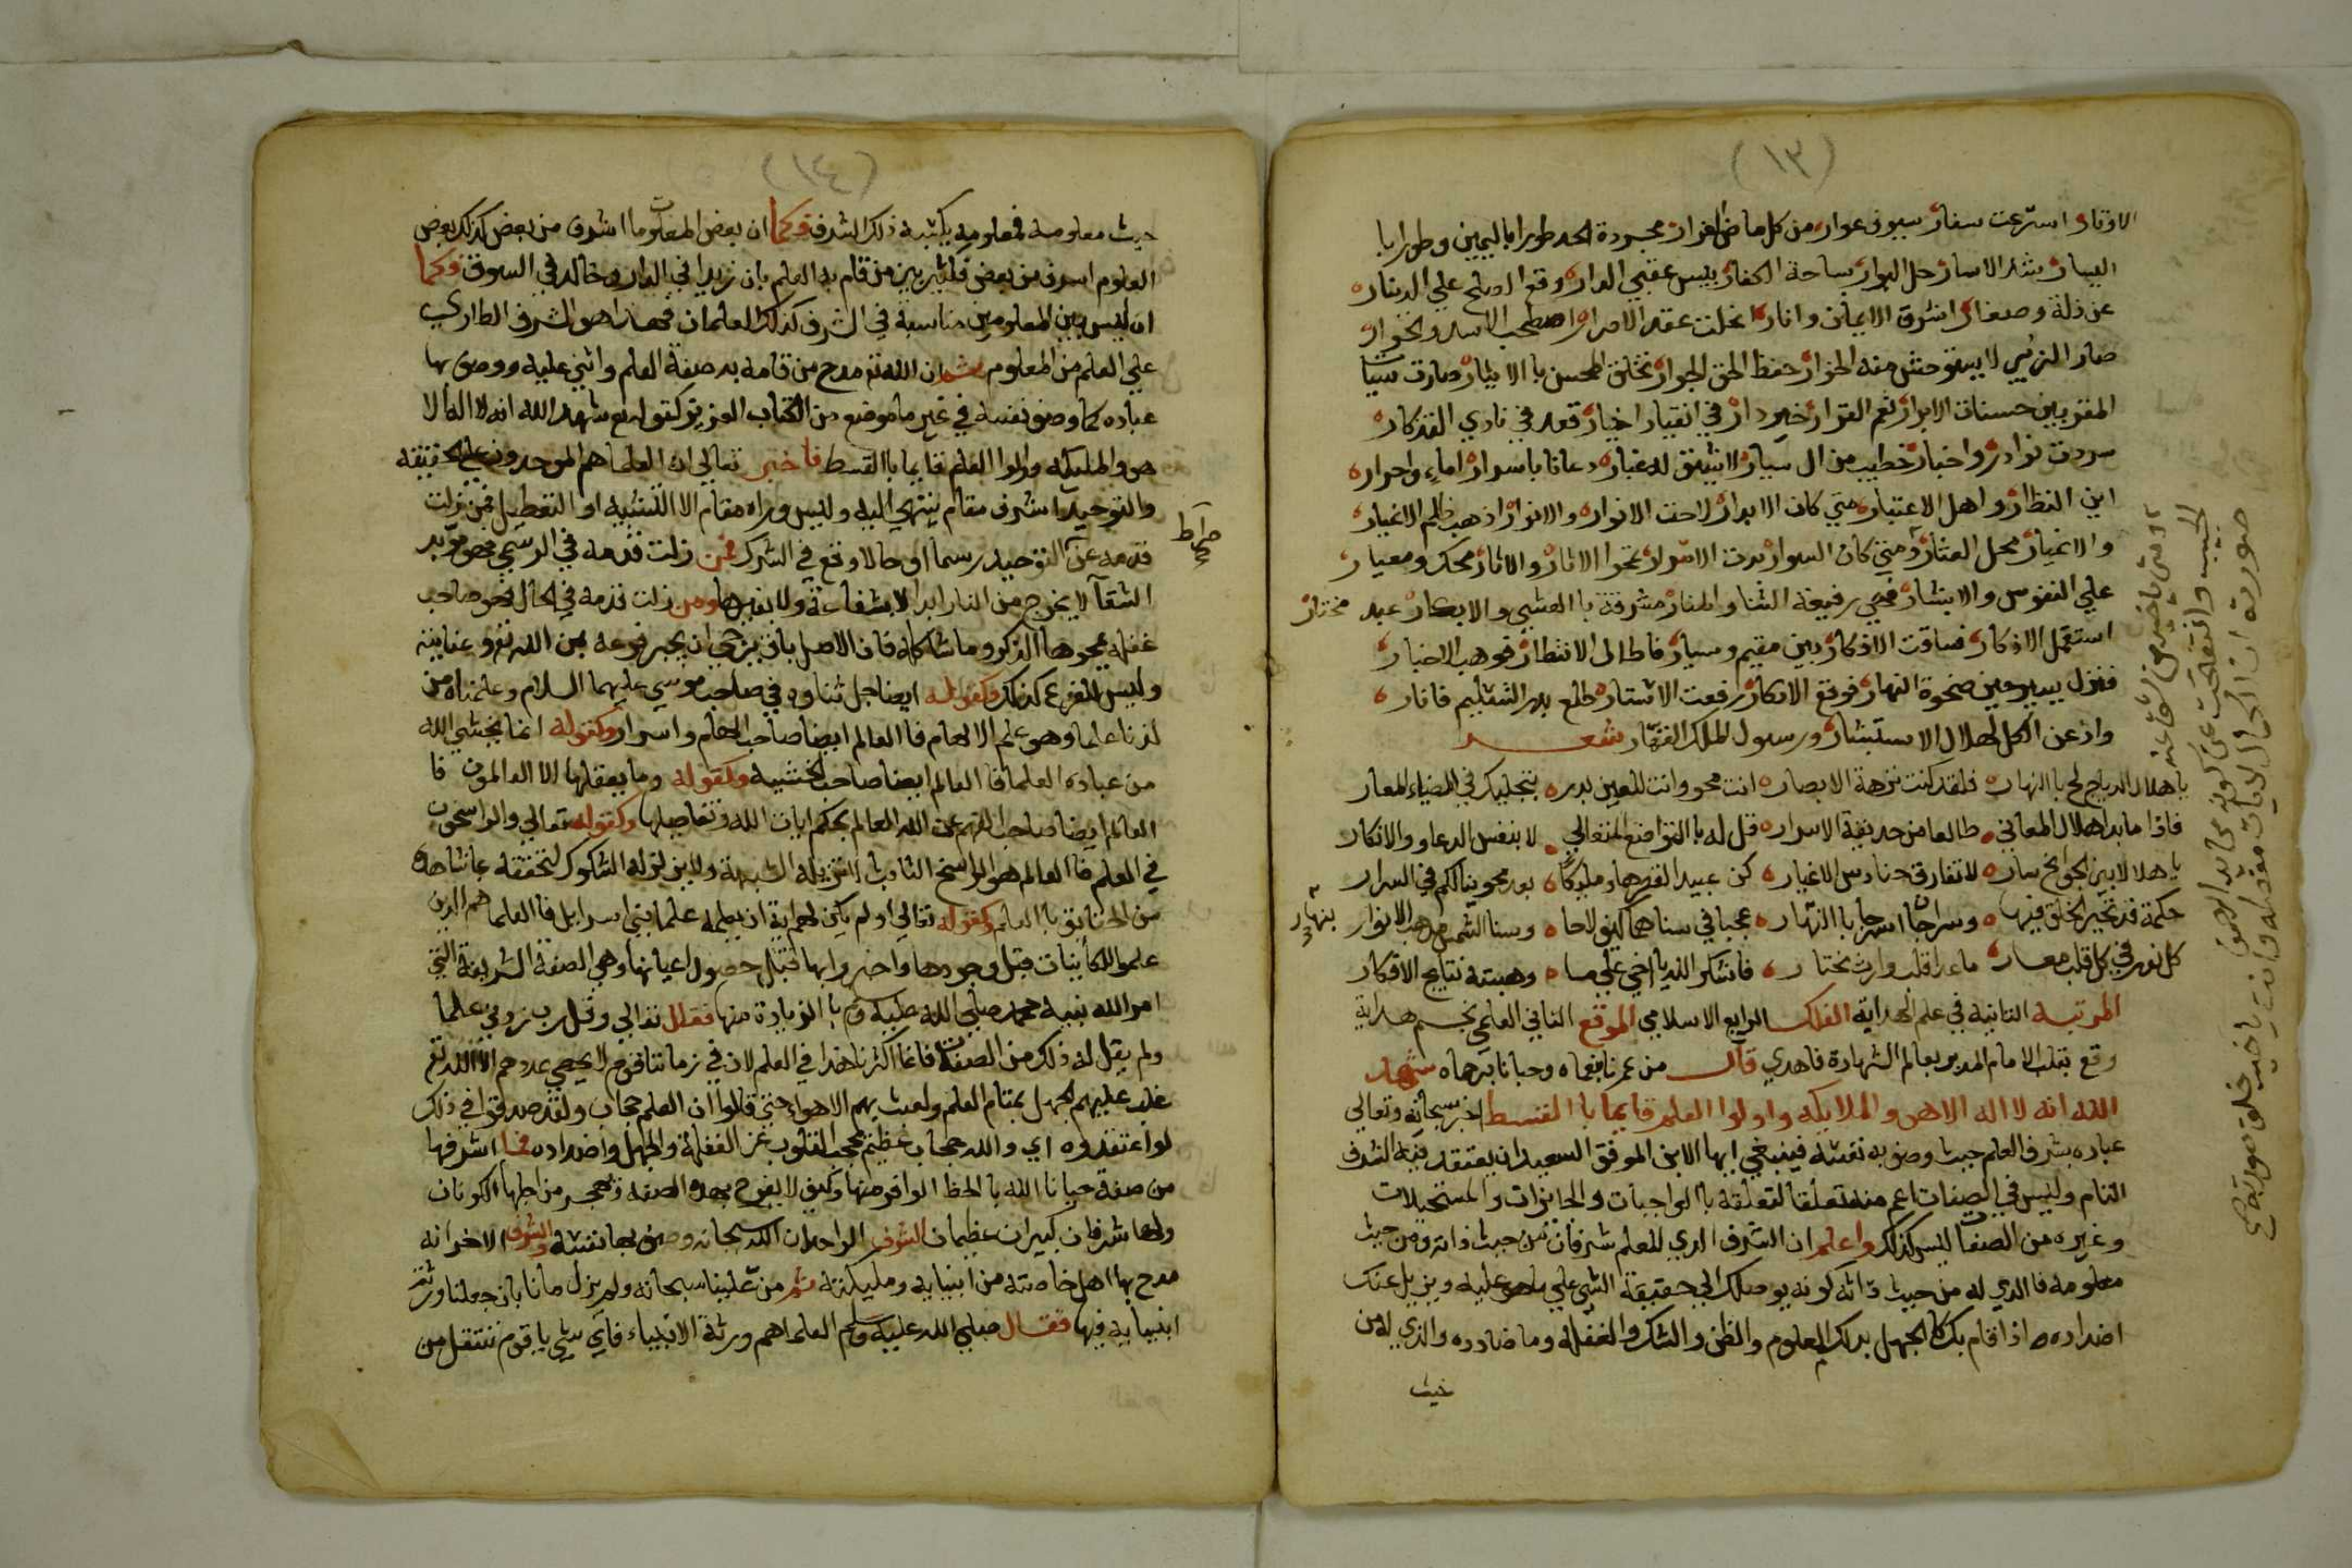 (١٣)
الاوتار استرعت سفار سيوف عوار من كل ماض الغرار مجردة الحد طورا باليمين وطورا با
اليسار شد الاسار حل البوار ساحة الكفار بيس عقبي الدار وقع الصلح علي الدينار
عن ذلة وصغار اشرق الايمان وانار انحلت عقد الاصرار اصطحب الاسد والخوار
صار الزبي لا يستوحش منه الخوار حفظ الحق الجوار تخلق المحسن با الايثار وصارت سيا
المقربين حسنات الابرار نعم القرار خير دار في انقياد اخيار قعد في نادي التذكار
سردت نوادر واخبار خطيب من ال سيار لا يشق له غبار دعانا باسرار اماء واحرار
اين النظار واهل الاعتبار متي كان الابدار لاحت الانوار والانوار اذهب ظلم الاغيار
والاغيار محل العثار ومتي كان السرار بدت الاسرار تمحوا الاثار والاثار محك ومعيار
علي النفوس والابشار فهي رفيعة الثنا والمنار مشرقة با العشي والابكار عبد مختار
استعمل الاذكار فساقت الافكار بين مقيم وسيار فاطال الانتظار فوهب الاخبار
فنزل يسير حين ضحوة النهار فوقع الانكار رفعت الاستار طلع بدر التسليم فانار
واذعن الكل لهلال الاستبشار ورسول الملك القهار شعر
يا هلال الدياجي لح با النهار فلقد كنت نزهة الابصار انت محو وانت للعين بدر بتجليك في الضياء المعار
فاذا ما بدا هلال المعاني طالعا من حديقة الاسرار قل له با التواضع المتعالي لا بنفس الدعاو والانكار
يا هلالا بين الجوانح سار لا تفارق حنادس الاغيار كن عبيدا القهرها ومليكا بعد محو ينالكم في السرار
حكمة قد تحير الخلق فيها وسراجا اسرجا با النهار عجبا في سناهما كيف لاحا وسنا الشمس مذهب الانوار
كل نور في كل قلب معار ما عدا قلب وارث مختار فاشكر الله يا اخي علي ما وهبته نتايج الافكار
المرتبة الثانية في علم الهداية الفلك الرابع الاسلامي الموقع الثاني العلمي نجم هداية
وقع بقلب الامام المدبر بعالم الشهادة فاهدي قال من عمرنا بنعماه وحبانا برحماه شهد
الله انه لا اله الا هو والملايكه واولوا العلم قايما با القسط اخبر سبحانه وتعالي
عباده بشرف العلم حيث وصف به نفسه فينبغي ايها الابن الموفق السعيد ان يعتقد فيه الشرف
التام وليس في الصفات اعم منه تعلقا لتعلقه با الواجبات والجايزات والمستحيلات
وغيره من الصفات ليس كذلك واعلم ان الشرف الذي للعلم شرفان من حيث ذاته ومن حيث
معلومه فا الذي له من حيث ذاته كونه يوصلك الي حقيقة الشي علي ما هو عليه ويزيل عنك
اضداده اذا قام بك كا الجهل بذلك المعلوم والظن والشك والغفلة وما ضادده والذي له من
حيث
(١٤)
حيث معلومه فمعلومه يكسبه ذلك الشرف وكما ان بعض المعلومات اشرف من بعض كذلك بعض
العلوم اشرف من بعض فكثير بين من قام به العلم بان زيدا في الدار وخالد في السوق وكما
ان ليس بين المعلومين مناسبة في الشرف كذلك العلمان فهذا هو الشرف الطاري
علي العلم من المعلوم ثم ان الله تع مدح من قامت به صفة العلم واثني عليه ووصف بها
عباده كما وصف نفسه في غير ما موضع من الكتاب العزيز كقوله تع شهد الله انه لا اله الا
هو والمليكه واولوا العلم قايما با القسط فاخبر تعالي ان العلما هم الموحدون علي الحقيقه
والتوحيد اشرف مقام ينتهي اليه وليس وراه مقام الا التشبيه او التعطيل فمن زلت
قدمه عن التوحيد رسما او حالا وقع في الشرك فمن زلت قدمه في الرسمي فهو مؤبد
الشقا لا يخرج من النار ابدا لا بشفاعة ولا بغيرها ومن زلت قدمه في الحال فهو صاحب
غفلة يمحوها الذكر وما شاكله فان الاصل باق يرجي ان يجبر فرعه بمن الله تع وعنايته
وليس الفرع كذلك وكقوله ايضا جل ثناوه في صاحب موسي عليهما السلام وعلمناه من
لدنا علما وهو علم الالهام فا العالم ايضا صاحب الهام واسرار وكقوله انما يخشي الله
من عباده العلما فا العالم ايضا صاحب الخشيه وكقوله وما يعقلها الا العالمون فا
العالم ايضا صاحب الفهم عن الله العالم بحكم ايات الله وتفاصيلها وكقوله تعالي والراسخون
في العلم فا العالم هو الراسخ الثابت الذي لا تزيله الشبهة ولا تزلزله الشكوك لتحققه بما شاهده
من الحقايق با العلم وكقوله تعالي اولم يكن لهم اية ان يعلمه علما بني اسرايل فا العلما هم الذين
علموا الكاينات قبل وجودها واخبروا بها قبل حصول اعيانها وهي الصفة الشريفة التي
امر الله نبيه محمد صلي الله عليه وسلم با الزيادة منها فقال تعالي وقل رب زدني علما
ولم يقل له ذلك من الصفات فانما اكثرنا هذا في العلم لان في زماننا قوم لا يحصي عددهم الا الله تع
غلب عليهم الجهل بمقام العلم ولعبت بهم الاهواء حتي قالوا ان العلم حجاب ولقد صدقوا في ذلك
لو اعتقدوه اي والله حجاب عظيم يحجب القلوب عن الغفلة والجهل واضداده فما اشرفها
من صفة حبانا الله با الحظ الوافر منها وكيف لا يفرح بهذه الصفه ويهجر من اجلها الكونان
ولها شرفان كبيران عظيمان الشرف الواحد ان الله سبحانه وصف بها نفسه والشرف الاخر انه
مدح بها اهل خاصته من انبيايه ومليكته ثم من علينا سبحانه ولم يزل مانا بان جعلنا ورثة
انبيايه فيها فقال صلي الله عليه وسلم العلما هم ورثة الانبياء فاي شي يا قوم ننتقل من